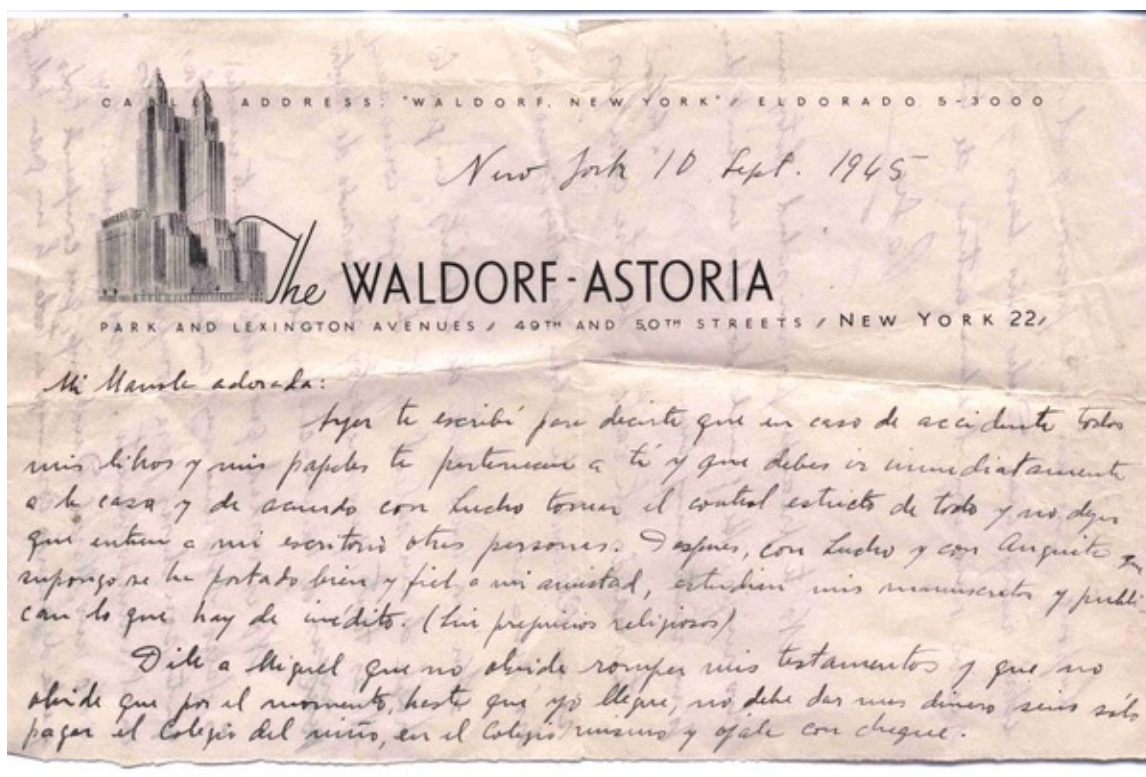 CABLE ADDRESS: "WALDORF, NEW YORK" / ELDORADO 5-3000
New York 10 Sept. 1945
The WALDORF-ASTORIA
PARK AND LEXINGTON AVENUES / 49TH AND 50TH STREETS / NEW YORK 22/
Mi adorada:
Ayer te escribí para decirte que en caso de accidente todos
mis libros y mis papeles te pertenecen a tí y que debes ir inmediatamente
a la casa y de acuerdo con Lucho tomar el control estricto de todo y no dejes
que entren a mi escritorio otras personas. Despues, con Lucho y con Anguita
supongo se ha portado bien y fiel a mi amistad, estudien mis manuscritos y publi
can lo que hay de inédito. (Sin prejuicios religiosos)
Dile a Miguel que no olvide romper mis testamentos y que no
olvide que por el momento, hasta que yo llegue, no debe dar mas dinero sino sólo
pagar el Colegio del niño, en el Colegio mismo y ojala con cheque.